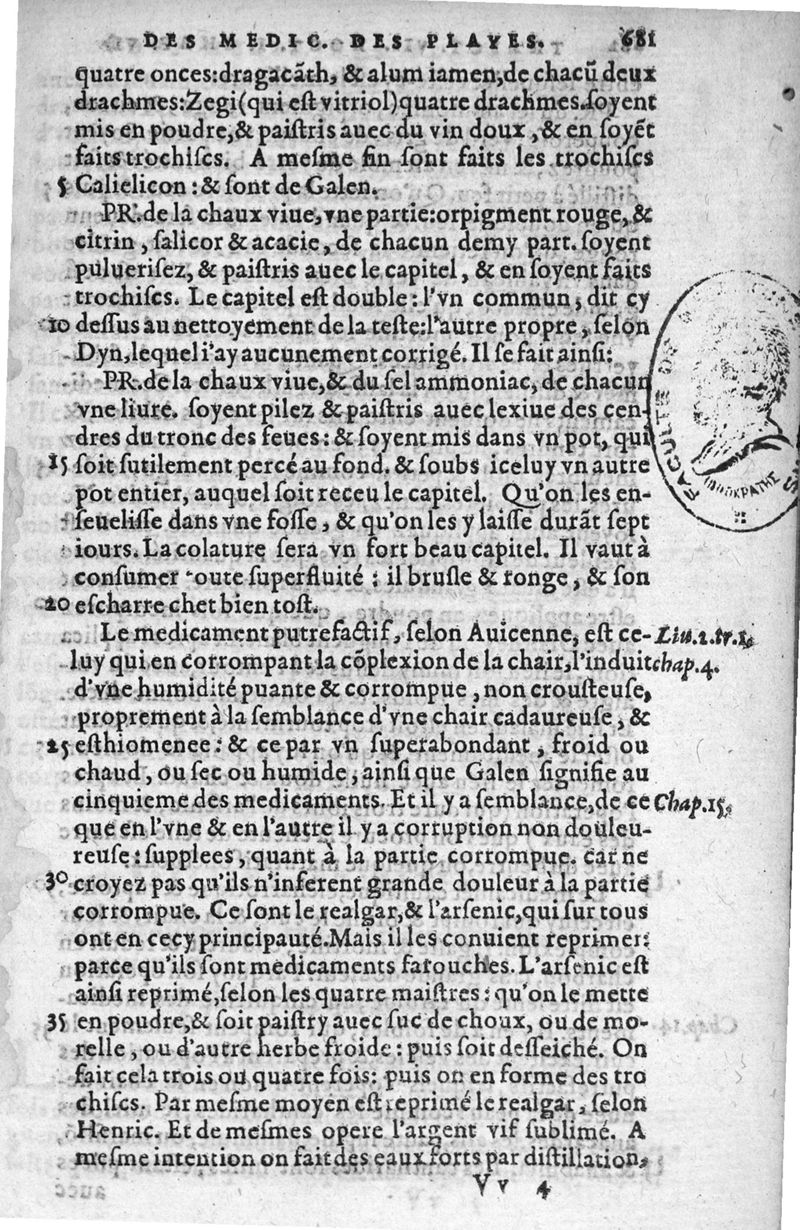 DES MEDIC. DES PLAYES. 681
quatre onces:dragacãth, & alum iamen,de chacũ deux
drachmes:Zegi(qui eſt vitriol)quatre drachmes.ſoyent
mis en poudre,& paiſtris auec du vin doux, & en ſoyẽt
faits trochiſcs. A meſme fin ſont faits les trochiſcs
5 Calielicon: & ſont de Galen.
PR. de la chaux viue, vne partie:orpigment rouge, &
citrin, ſalicor & acacie, de chacun demy part. ſoyent
pulueriſez, & paiſtris auec le capitel, & en ſoyent faits
trochiſcs. Le capitel eſt double: l'vn commun, dit cy
10 deſſus au nettoyement de la teſte:l'autre propre, ſelon
Dyn,lequel i'ay aucunement corrigé. Il ſe fait ainſi:
PR. de la chaux viue,& du ſel ammoniac, de chacun
vne liure. ſoyent pilez & paiſtris auec lexiue des cen-
dres du tronc des feues: & ſoyent mis dans vn pot, qui
15 ſoit ſutilement percé au fond. & ſoubs iceluy vn autre
pot entier, auquel ſoit receu le capitel. Qu'on les en-
ſeueliſſe dans vne foſſe, & qu'on les y laiſſe durãt ſept
iours. La colature ſera vn fort beau capitel. Il vaut à
conſumer oute ſuperfluité: il bruſle & ronge, & ſon
20 eſcharre chet bien toſt.
Le medicament putrefactif, ſelon Auicenne, eſt ce- Liu.2.tr.1.
luy qui en corrompant la cõplexion de la chair,l'induit chap.4.
d'vne humidité puante & corrompue, non crouſteuſe,
proprement à la ſemblance d'vne chair cadaureuſe, &
25 eſthiomenee: & ce par vn ſuperabondant, froid ou
chaud, ou ſec ou humide, ainſi que Galen ſignifie au
cinquieme des medicaments. Et il y a ſemblance,de ce Chap.15.
que en l'vne & en l'autre il y a corruption non douleu-
reuſe: ſupplees, quant à la partie corrompue. car ne
30 croyez pas qu'ils n'inferent grande douleur à la partie
corrompue. Ce ſont le realgar,& l'arſenic,qui ſur tous
ont en cecy principauté.Mais il les conuient reprimer:
parce qu'ils ſont medicaments farouches. L'arſenic eſt
ainſi reprimé,ſelon les quatre maiſtres: qu'on le mette
35 en poudre,& ſoit paiſtry auec ſuc de choux, ou de mo-
relle, ou d'autre herbe froide: puis ſoit deſſeiché. On
fait cela trois ou quatre fois: puis on en forme des tro
chiſcs. Par meſme moyen eſt reprimé le realgar, ſelon
Henric. Et de meſmes opere l'argent vif ſublimé. A
meſme intention on fait des eaux forts par diſtillation,
Vv 4
FACULTE DE
ΙΠΠΟΚΡΑΤΗΣ